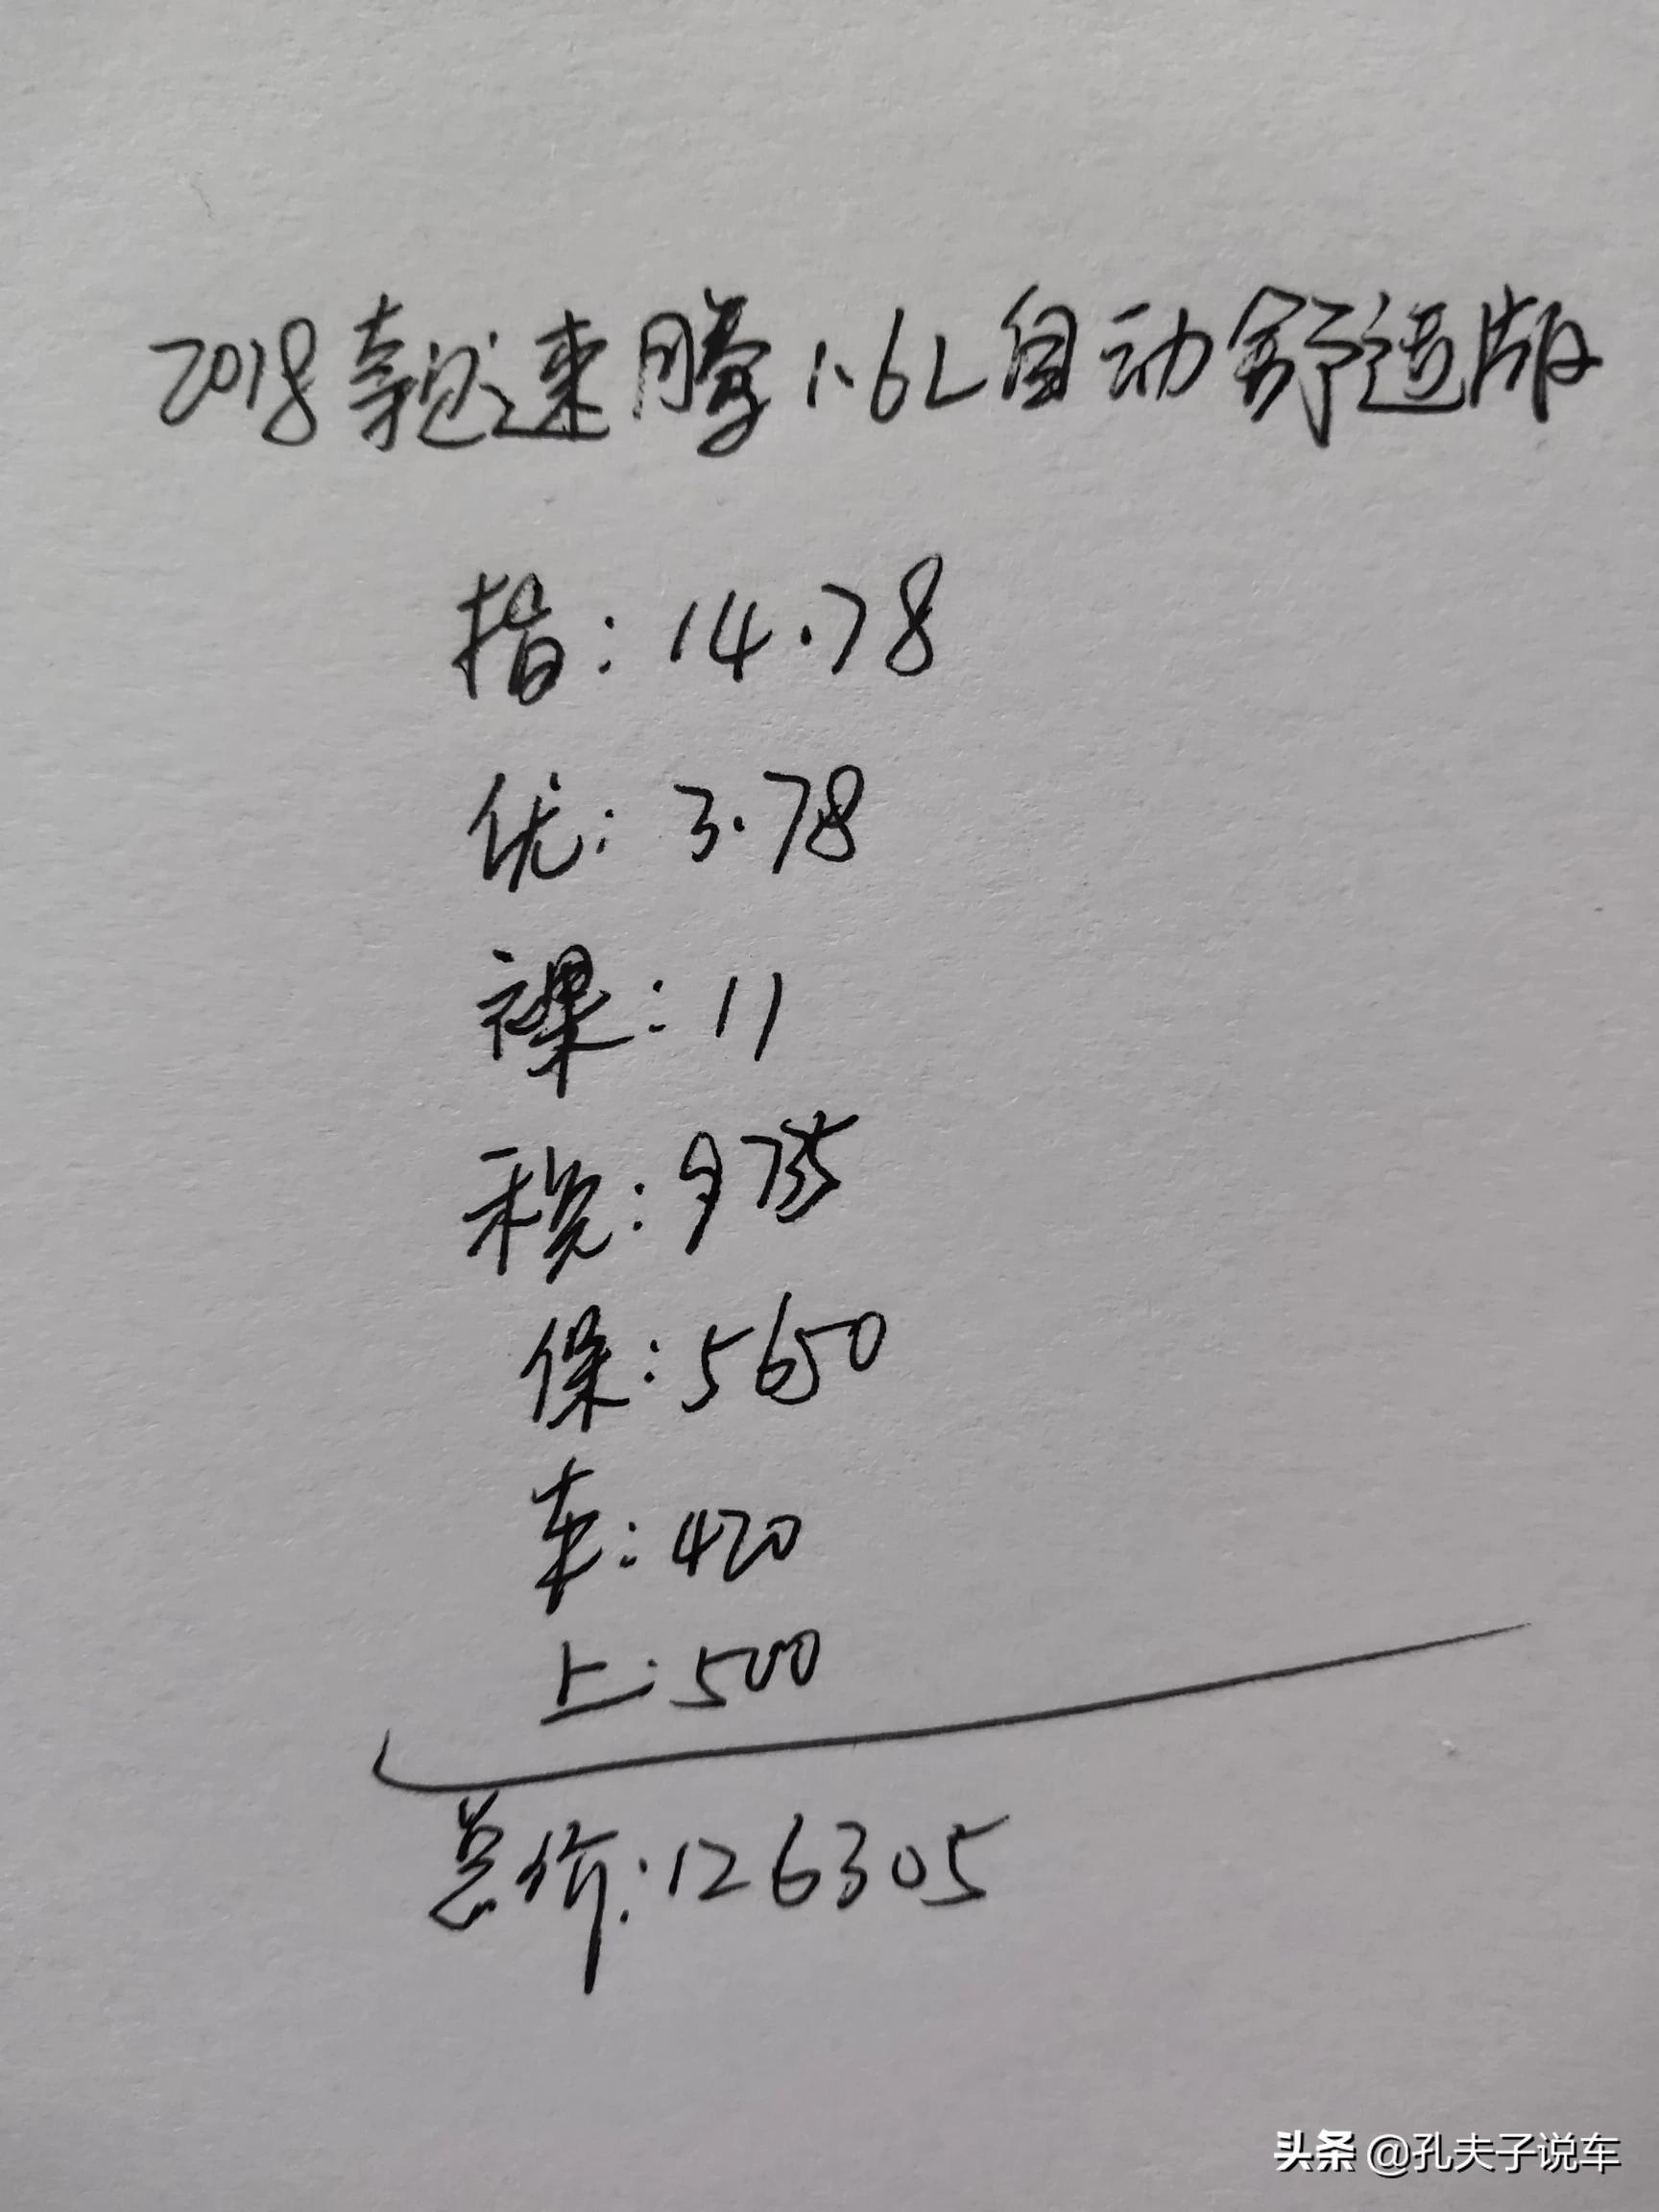 2018款速腾1.6L自动舒适版
指：14.78
优：3.78
裸：11
税：9735
保：5650
车：420
上：500
总价：126305
头条 @孔夫子说车